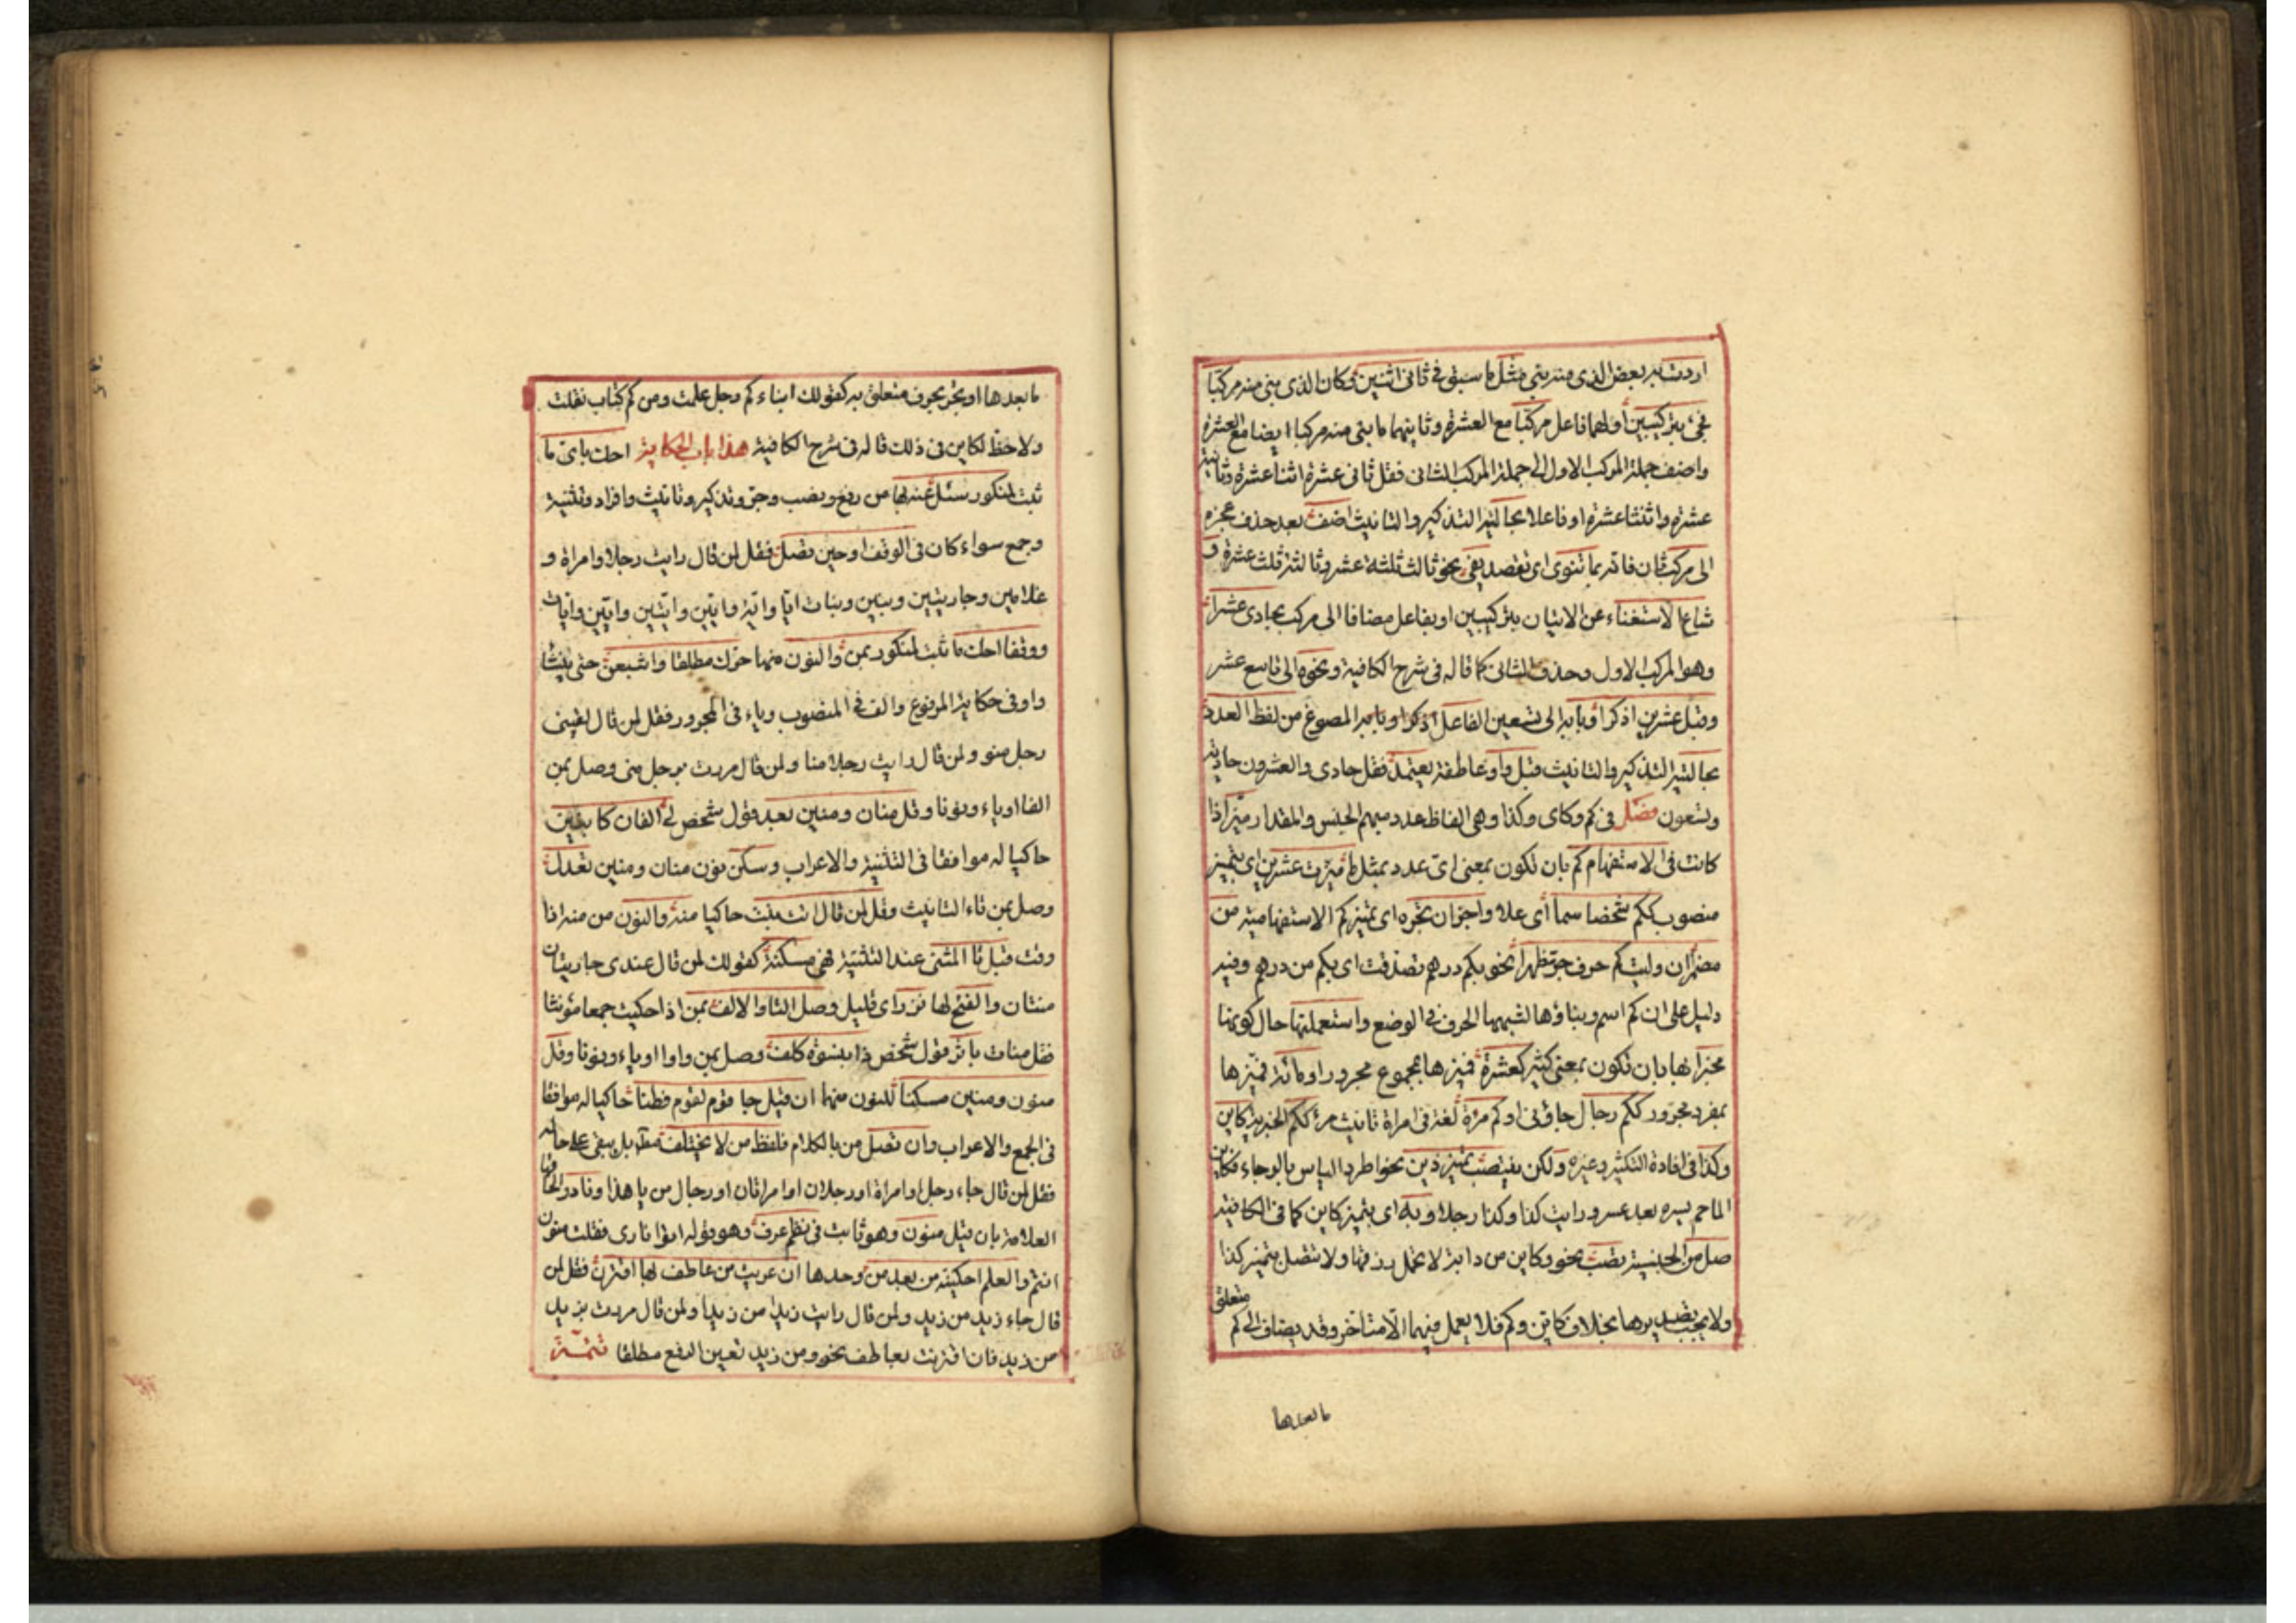 اردت به بعض الذى منه بني مثل ما سبق في ثانى اثنين وكان الذى بني منه مركبا
فجئ بتركيبين أولهما فاعل مركبا مع العشرة وثانيهما ما بني منه مركبا ايضا مع العشرة
واضف جملة المركب الاول الى جملة المركب الثانى فقل ثانى عشرة اثنا عشرة وثانية
عشرة واثنتا عشرة او فاعلا بحالتيه التذكير والتانيث اضف بعد حذف عجزه
الى مركب ثان فانه بما تنوى اى تقصد يفى نحو ثالث ثلثة عشر وثالثة ثلث عشرة و
شاع الاستغناء عن الاتيان بتركيبين او بفاعل مضافا الى مركب بحادى عشرا
وهو المركب الاول وحذف الثانى كما قاله فى شرح الكافية ونحوه الى تاسع عشر
وقبل عشرين اذكرا وبابه الى تسعين الفاعل اذكرا وبابه المصوغ من لفظ العدد
بحالتيه التذكير والتانيث قبل واو عاطفة يعتمد فقل حادى والعشرون حادية
وتسعون فصل فى كم وكاى وكذا وهى الفاظ عدد مبهم الجنس والمقدار ميز اذا
كانت فى الاستفهام كم بان تكون بمعنى اىّ عدد بمثل ما ميزت عشرين اى بتميز
منصوب ككم شخصا سما أى علا واجز ان تجره اى تميز كم الاستفهامية من
مضمرا ان وليت كم حرف جر مظهرا نحو بكم درهم تصدقت اى بكم من درهم وفيه
دليل على ان كم اسم وبناؤها لشبهها الحرف في الوضع واستعملنها حال كونها
مخبرا بها بان تكون بمعنى كثير كعشرة فميزها بمجموع مجرور او مائة فميزها
بمفرد مجرور ككم رجال جاؤنى او كم مرة لغة فى امراة تانيث مرء ككم الخبرية كاين
وكذا فى افادة التكثير وغيره ولكن ينتصب تميز ذين نحو اطرد الياس بالرجاء فكاين
الما حم يسره بعد عسر ورايت كذا وكذا رجلا وبه اى بتميز كاين كما فى الكافية
صل من الجنسية تصب نحو وكاين من دابة لا تحمل رزقها ولا تتصل بتميز كذا
ولا يجب تصديرها بخلاف كاين وكم فلا يعمل فيهما الا متاخر وقد يضاف الى كم متعلق
ما بعدها
ما بعدها او يجر بحرف متعلق به كقولك ابناء كم رجل علمت ومن كم كتاب نقلت
ولا حظ لكاين فى ذلك قاله فى شرح الكافية هذا باب الحكاية احك باى ما
ثبت لمنكور سئل عنه بها من رفع ونصب وجر وتذكير وتانيث وافراد وتثنية
وجمع سواء كان فى الوقف او حين تصل فقل لمن قال رايت رجلا وامراة و
غلامين وجاريتين وبنين وبنات ايّا واية وايين وايتين وايين وايات
ووقفا احك ما ثبت لمنكور بمن والنون منها حرك مطلقا واشبعن حتى ينشا
واو فى حكاية المرفوع والف فى المنصوب وياء فى المجرور فقل لمن قال لقينى
رجل منو ولمن قال رايت رجلا منا ولمن قال مررت برجل منى وصل بمن
الفا او ياء ونونا وقل منان ومنين بعد قول شخص لى الفان كابنين
حاكيا له موافقا فى التثنية والاعراب وسكن نون منان ومنين تعدل
وصل بمن تاء التانيث وقل لمن قال اتت بنت حاكيا منه والنون من منه اذا
وقت قبل تا المثنى عند التثنية فهى مسكنة كقولك لمن قال عندى جاريتان
منتان والفتح لها نزر اى قليل وصل التا والالف بمن اذا حكيت جمعا مؤنثا
فقل منات باثر قول شخص ذا بنسوة كلف وصل بمن واوا او ياء ونونا وقل
منون ومنين مسكنا للنون منهما ان قيل جا قوم لقوم فطنا حاكيا له موافقا
فى الجمع والاعراب وان تصل من بالكلام فلفظ من لا يختلف مطلقا بل يبقى على حاله
فقل لمن قال جاء رجل او امراة او رجلان او امراتان او رجال من يا هذا ونادر الحاقها
العلامة بان قيل منون وهو ثابت فى نظم عرف وهو قوله اتوا نارى فقلت منون
انتم والعلم احكينه من بعد من وحدها ان عريت من عاطف بها اقترن فقل لمن
قال جاء زيد من زيد ولمن قال رايت زيدا من زيدا ولمن قال مررت بزيد
من زيد فان اقترنت بعاطف نحو ومن زيد تعين الرفع مطلقا تتمة